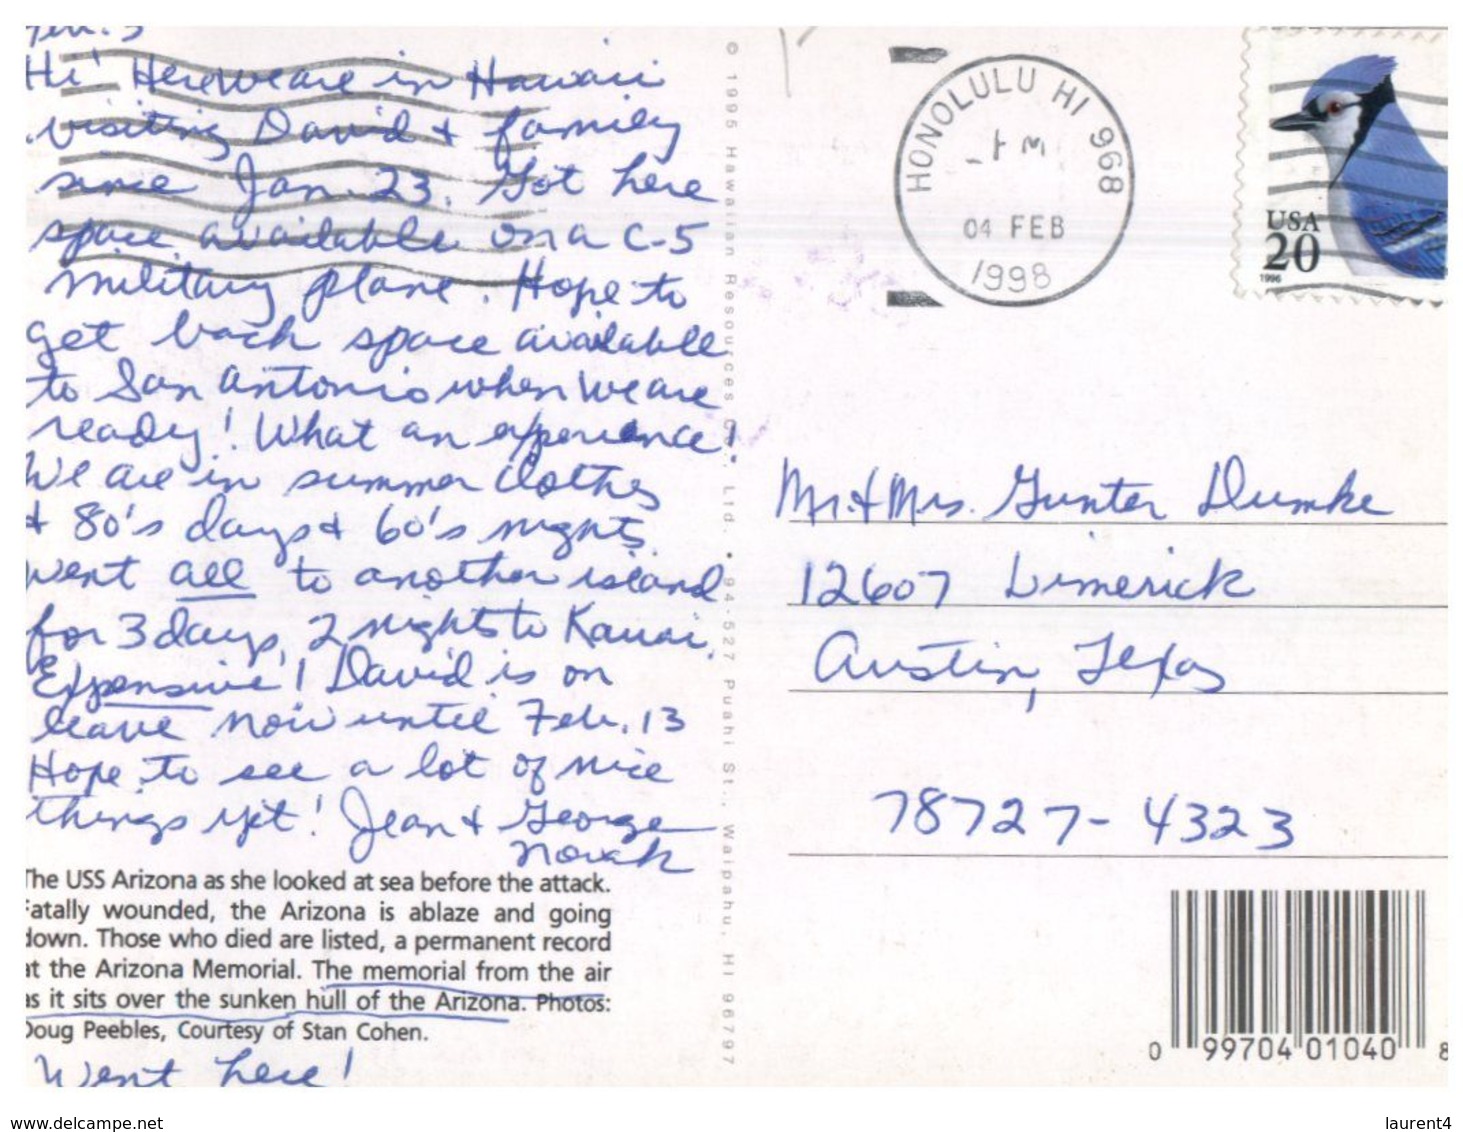 Feb. 3
Hi! Here we are in Hawaii
visiting David & family
since Jan. 23. Got here
space available on a C-5
military plane. Hope to
get back space available
to San Antonio when we are
ready! What an experience!
We are in summer clothes
& 80's days & 60's nights.
Went all to another island
for 3 days, 2 nights to Kauai.
Expensive! David is on
leave now until Feb. 13
Hope to see a lot of nice
things yet! Jean & George
Novak
The USS Arizona as she looked at sea before the attack.
Fatally wounded, the Arizona is ablaze and going
down. Those who died are listed, a permanent record
at the Arizona Memorial. The memorial from the air
as it sits over the sunken hull of the Arizona. Photos:
Doug Peebles, Courtesy of Stan Cohen.
Went here!
© 1995 Hawaiian Resources Co., Ltd. • 94-527 Puahi St., Waipahu, HI 96797
HONOLULU HI 968
PM
04 FEB
1998
USA
20
1996
Mr. & Mrs. Gunter Dumke
12607 Limerick
Austin, Texas
78727-4323
0 99704 01040 8
www.delcampe.net
laurent4